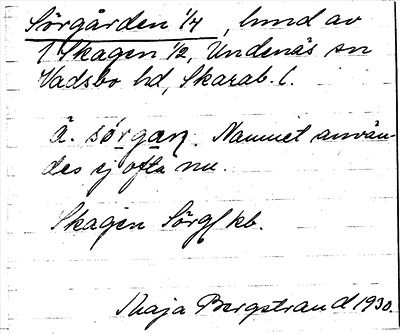 Sörgården 1/4, hmd av
1 Skagen 1/2, Undenäs sn
Vadsbo hd, Skarab. l.
ä. sörgaɳ. Namnet använ-
des ej ofta nu.
Skagen Sörg/ kb.
Maja Bergstrand 1930.